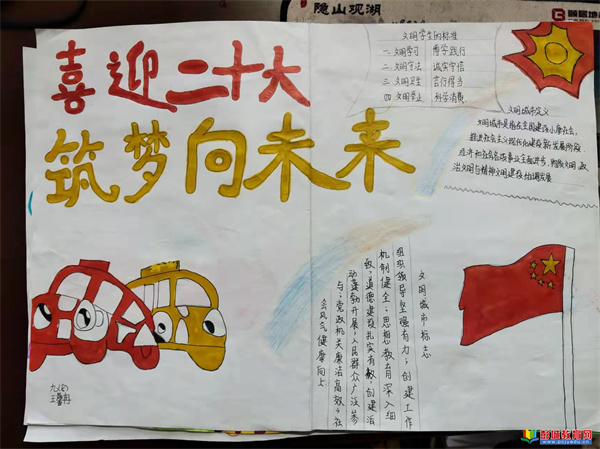 隐山观湖
喜迎二十大
筑梦向未来
文明学生的标准
一 文明学习 博学践行
二 文明守法 诚实守信
三 文明卫生 言行得当
四 文明举止 科学消费
文明城市定义
文明城市是指在全面建设小康社会,
推进社会主义现代化建设新发展阶段,
经济和社会各项事业全面进步,物质文明、政
治文明与精神文明建设协调发展
文明城市标志
组织领导坚强有力;创建工作
机制健全;思想教育深入细
致;道德建设扎实有效;创建活
动蓬勃开展;人民群众广泛参
与;党政机关廉洁高效;社
会风气健康向上
九(5)